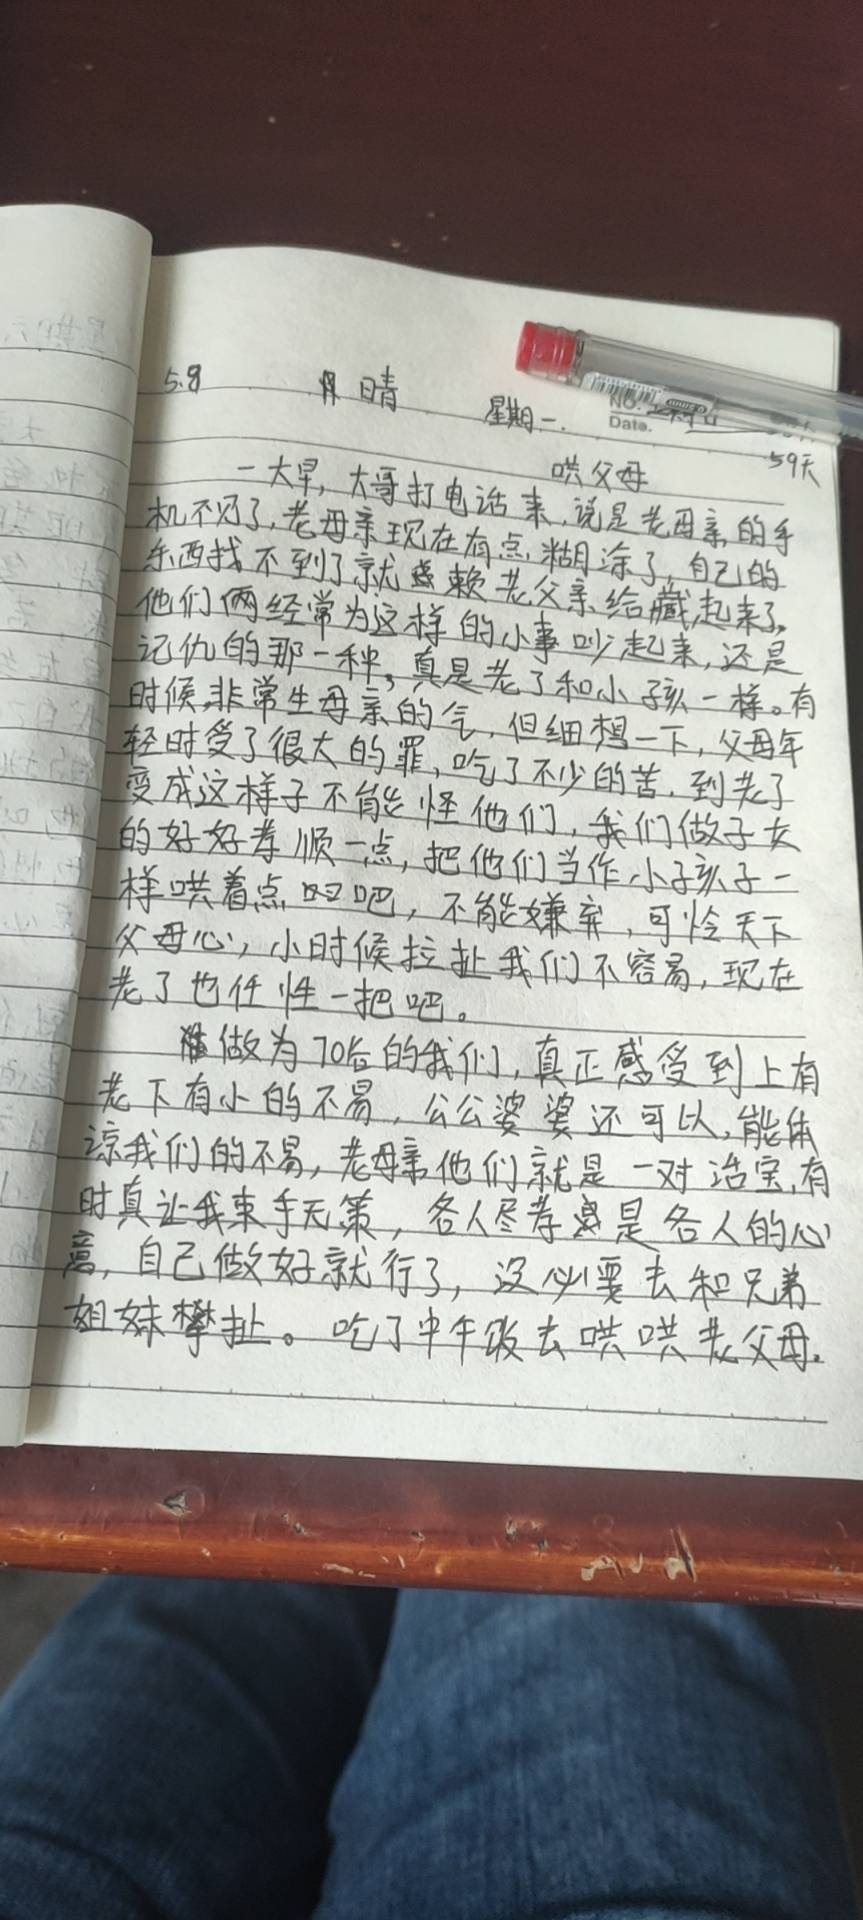 5.9 晴 星期一. NO.
Date.
59天
哄父母
一大早,大哥打电话来,说是老母亲的手
机不见了,老母亲现在有点糊涂了,自己的
东西找不到了就赖老父亲给藏起来了,
他们俩经常为这样的小事吵起来,还是
记仇的那一种,真是老了和小孩一样。有
时候,非常生母亲的气,但细想一下,父母年
轻时受了很大的罪,吃了不少的苦,到老了
变成这样子不能怪他们,我们做子女
的好好孝顺一点,把他们当作小子孩子一
样哄着点吧,不能嫌弃,可怜天下
父母心,小时候拉扯我们不容易,现在
老了也任性一把吧。
做为70后的我们,真正感受到上有
老下有小的不易,公公婆婆还可以,能体
谅我们的不易,老母亲他们就是一对活宝,有
时真让我束手无策,各人尽孝是各人的心
意,自己做好就行了,没必要去和兄弟
姐妹攀扯。吃了中午饭去哄哄老父母.